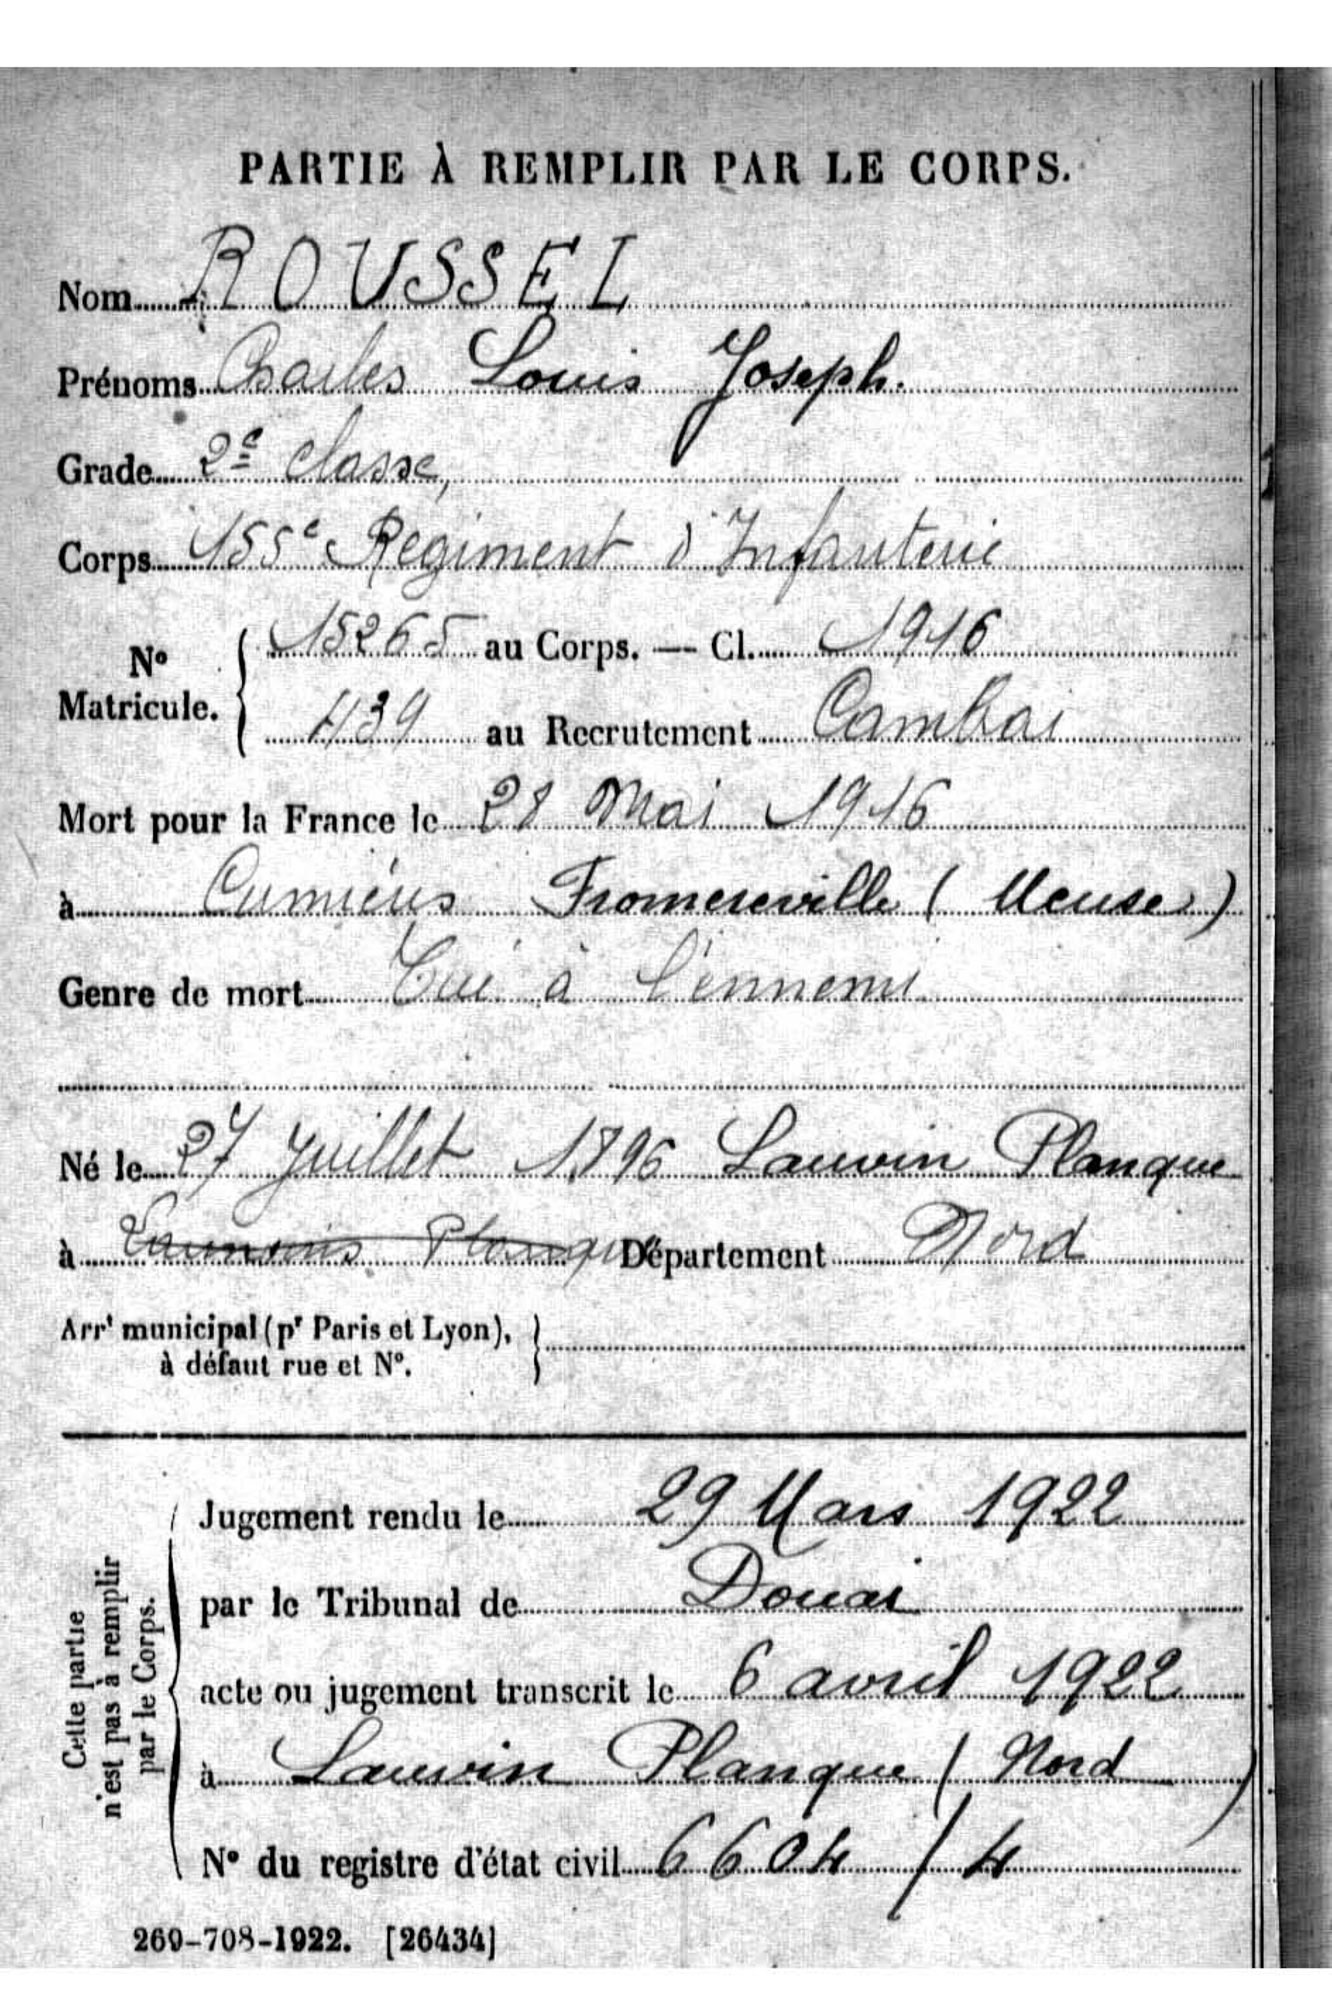 PARTIE À REMPLIR PAR LE CORPS.
Nom ROUSSEL
Prénoms Charles Louis Joseph.
Grade 2e classe,
Corps 155e Régiment d'Infanterie
No Matricule. 15265 au Corps. — Cl. 1916
439 au Recrutement Cambrai
Mort pour la France le 28 Mai 1916
à Cumières Fromereville (Meuse)
Genre de mort Tué à l'ennemi
Né le 27 Juillet 1896 Lauwin Planque
à Planque Département Nord
Arrt municipal (pr Paris et Lyon),
à défaut rue et No.
Cette partie
n'est pas à remplir
par le Corps.
Jugement rendu le 29 Mars 1922
par le Tribunal de Douai
acte ou jugement transcrit le 6 avril 1922
à Lauwin Planque (Nord)
No du registre d'état civil 6604/4
269-708-1922. [26434]